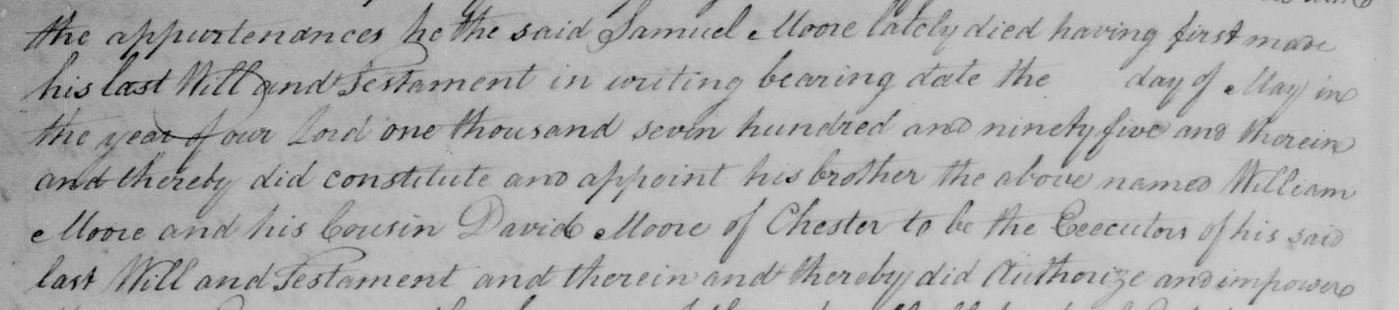 the appurtenances he the said Samuel Moore lately died having first made
his last Will and Testament in writing bearing date the day of May in
the year of our Lord one thousand seven hundred and ninety five and therein
and thereby did constitute and appoint his brother the above named William
Moore and his Cousin David Moore of Chester to be the Executors of his said
last Will and Testament and therein and thereby did Authorize and impower